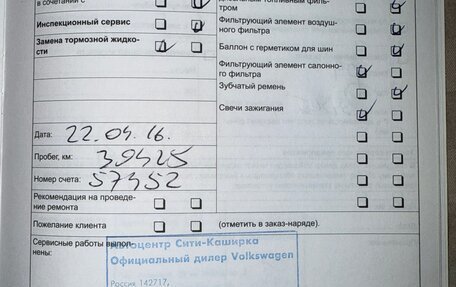 в сочетании с
Инспекционный сервис
Замена тормозной жидко-
сти
топливным филь-
тром
Фильтрующий элемент воздуш-
ного фильтра
Баллон с герметиком для шин
Фильтрующий элемент салонно-
го фильтра
Зубчатый ремень
Свечи зажигания
Дата: 22.04.16.
Пробег, км: 39425
Номер счета: 57352
Рекомендация на проведе-
ние ремонта
Пожелание клиента (отметить в заказ-наряде).
Сервисные работы выпол-
нены:
Автоцентр Сити-Каширка
Официальный дилер Volkswagen
Россия 142717,